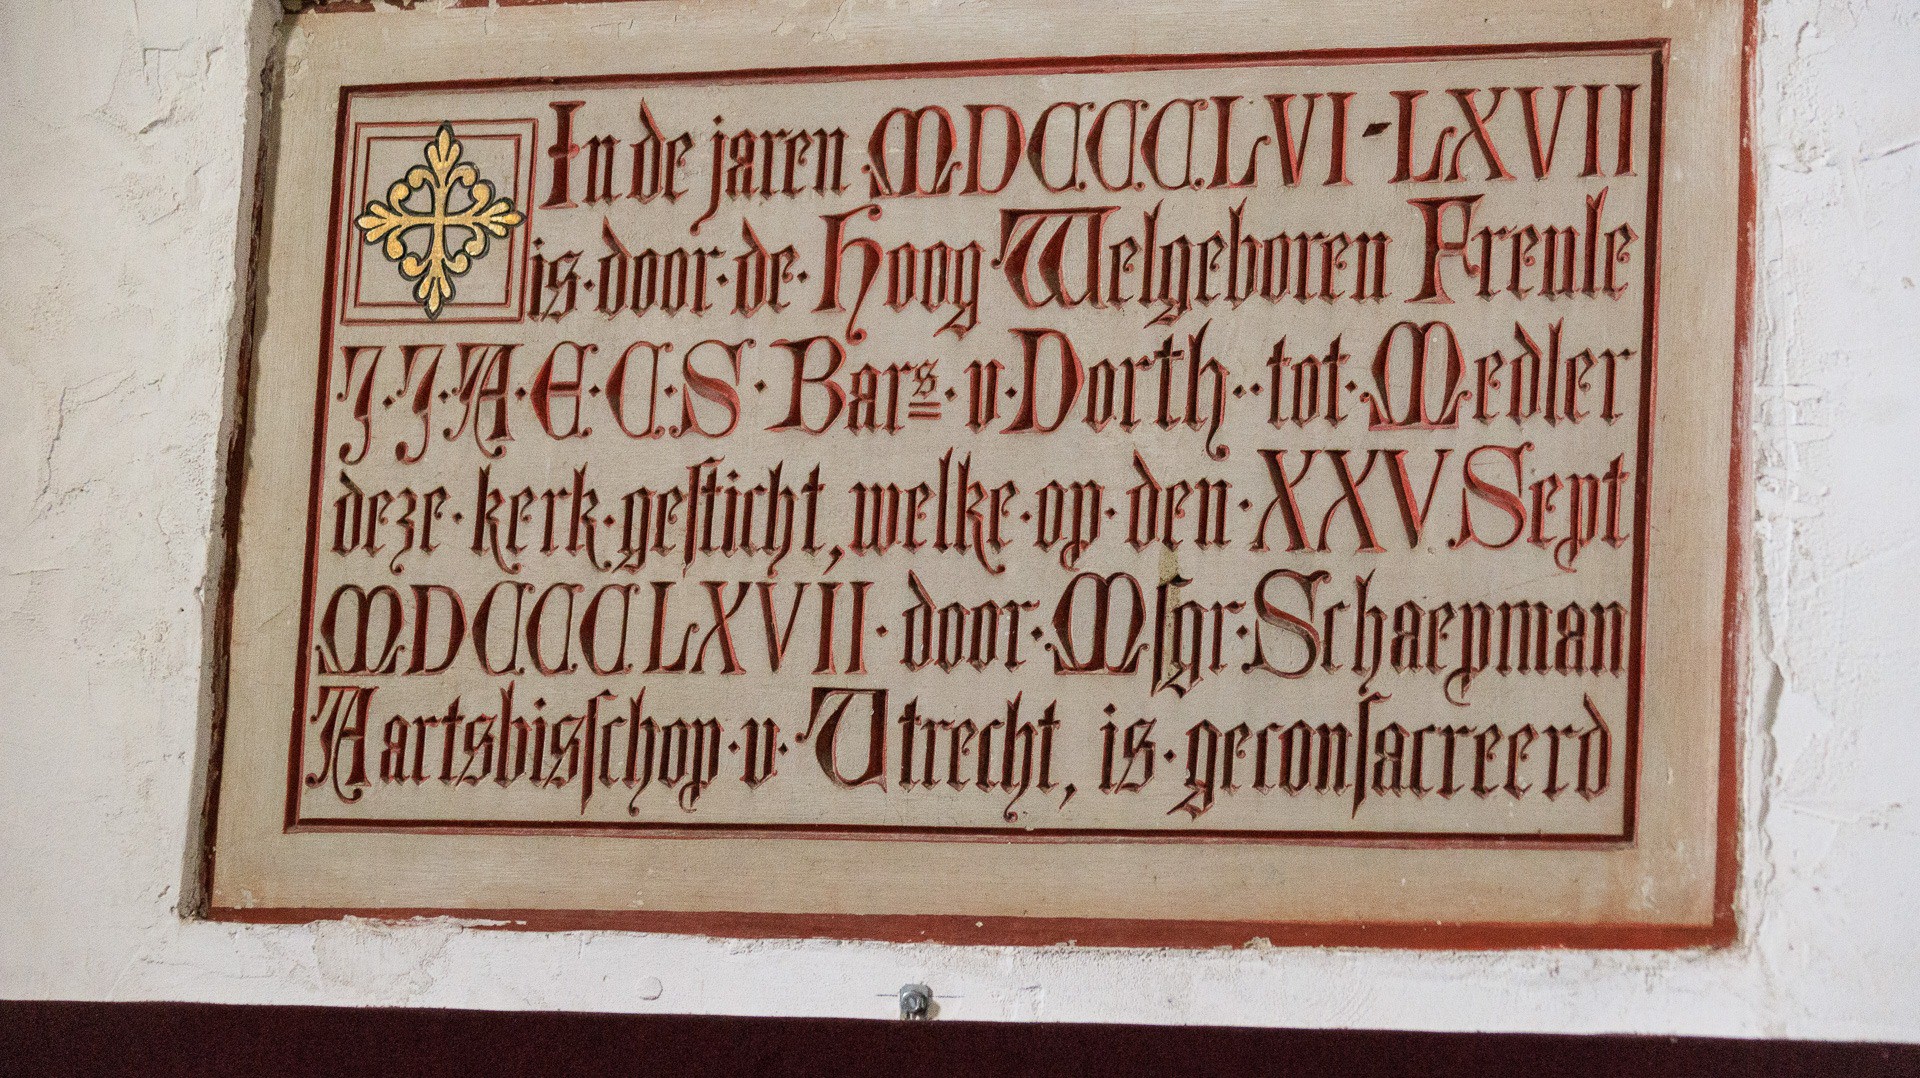 In de jaren MDCCCLVI-LXVII
is·door·de·Hoog·Welgeboren Freule
J·J·A·E·C·S·Bars·v·Dorth··tot·Medler
deze·kerk·gesticht, welke·op·den·XXV Sept
MDCCCLXVII·door·Msgr·Schaepman
Aartsbisschop·v·Utrecht, is·geconsacreerd